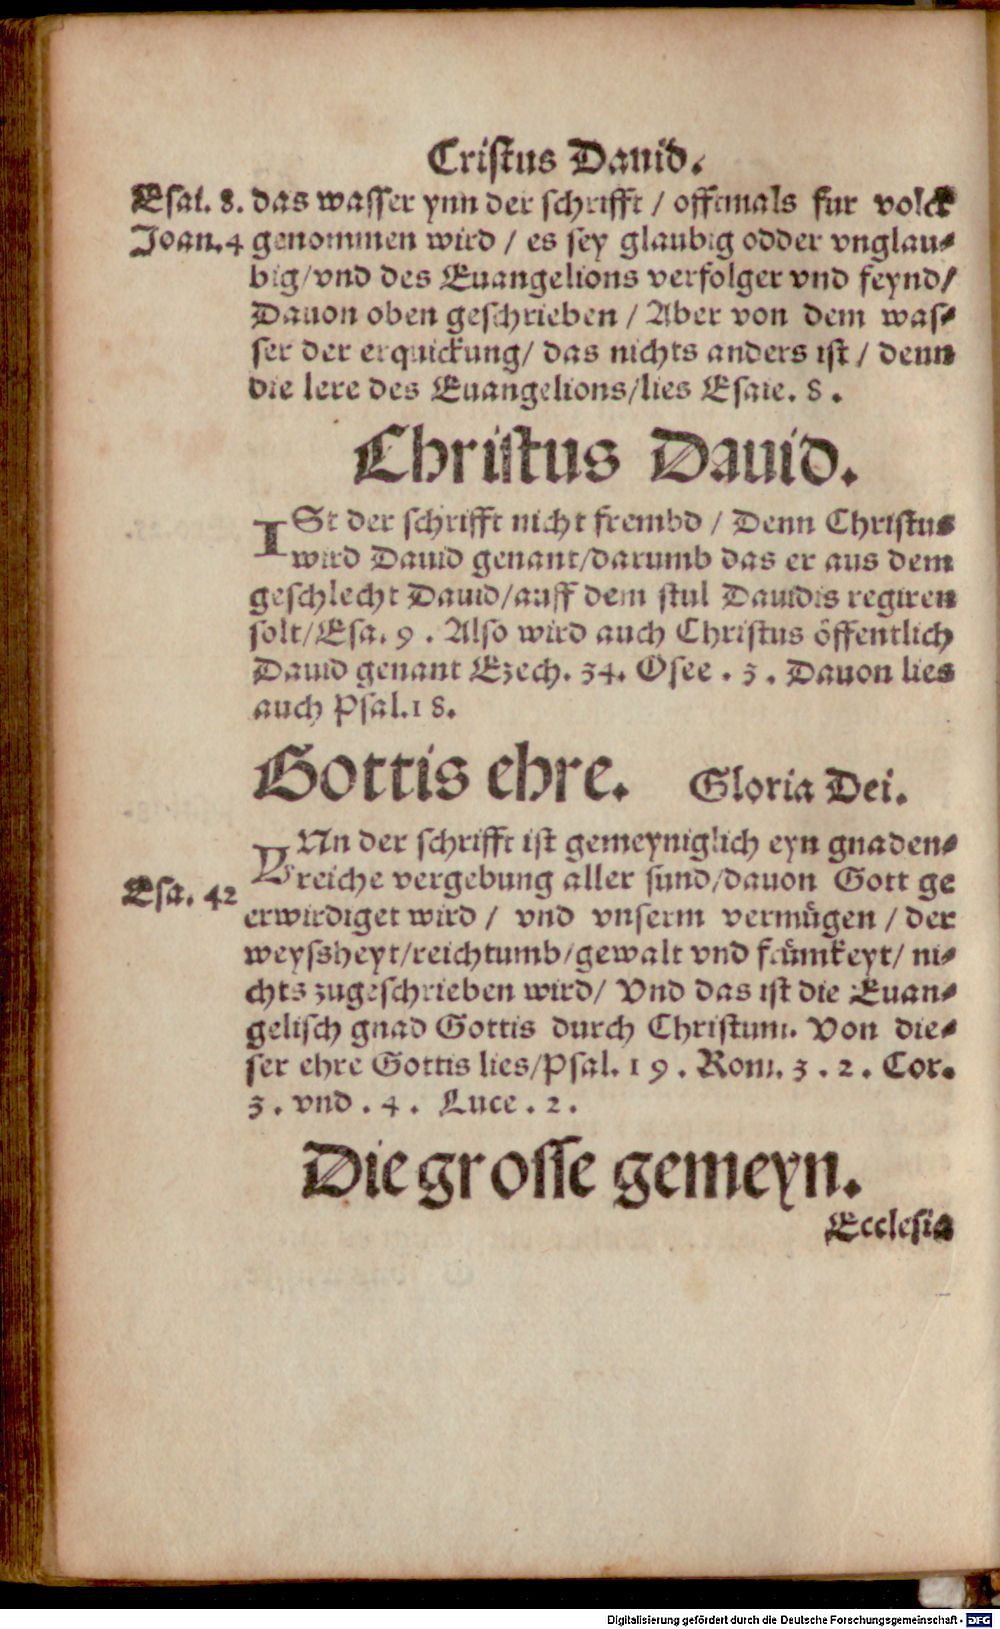 Cristus Dauid.
Esai. 8. das wasser ynn der schrifft / offtmals fur volck
Joan. 4 genommen wird / es sey glaubig odder vnglau⸗
big/vnd des Euangelions verfolger vnd feynd/
Dauon oben geschrieben / Aber von dem was⸗
ser der erquickung/ das nichts anders ist / denn
die lere des Euangelions/lies Esaie. 8 .
Christus Dauid.
ISt der schrifft nicht frembd / Denn Christus
wird Dauid genant/darumb das er aus dem
geschlecht Dauid/auff dem stul Dauidis regiren
solt/Esa. 9 . Also wird auch Christus öffentlich
Dauid genant Ezech. 34. Osee . 3 . Dauon lies
auch Psal.18.
Gottis ehre. Gloria Dei.
YNn der schrifft ist gemeyniglich eyn gnaden⸗
reiche vergebung aller sund/dauon Gott ge
Esa. 42 erwirdiget wird / vnd vnserm vermügen / der
weyssheyt/reichtumb/gewalt vnd frümkeyt/ ni⸗
chts zugeschrieben wird/ Vnd das ist die Euan⸗
gelisch gnad Gottis durch Christum. Von die⸗
ser ehre Gottis lies/Psal. 19 . Rom. 3 . 2 . Cor.
3 . vnd . 4 . Luce . 2 .
Die grosse gemeyn.
Ecclesia
Digitalisierung gefördert durch die Deutsche Forschungsgemeinschaft - DFG